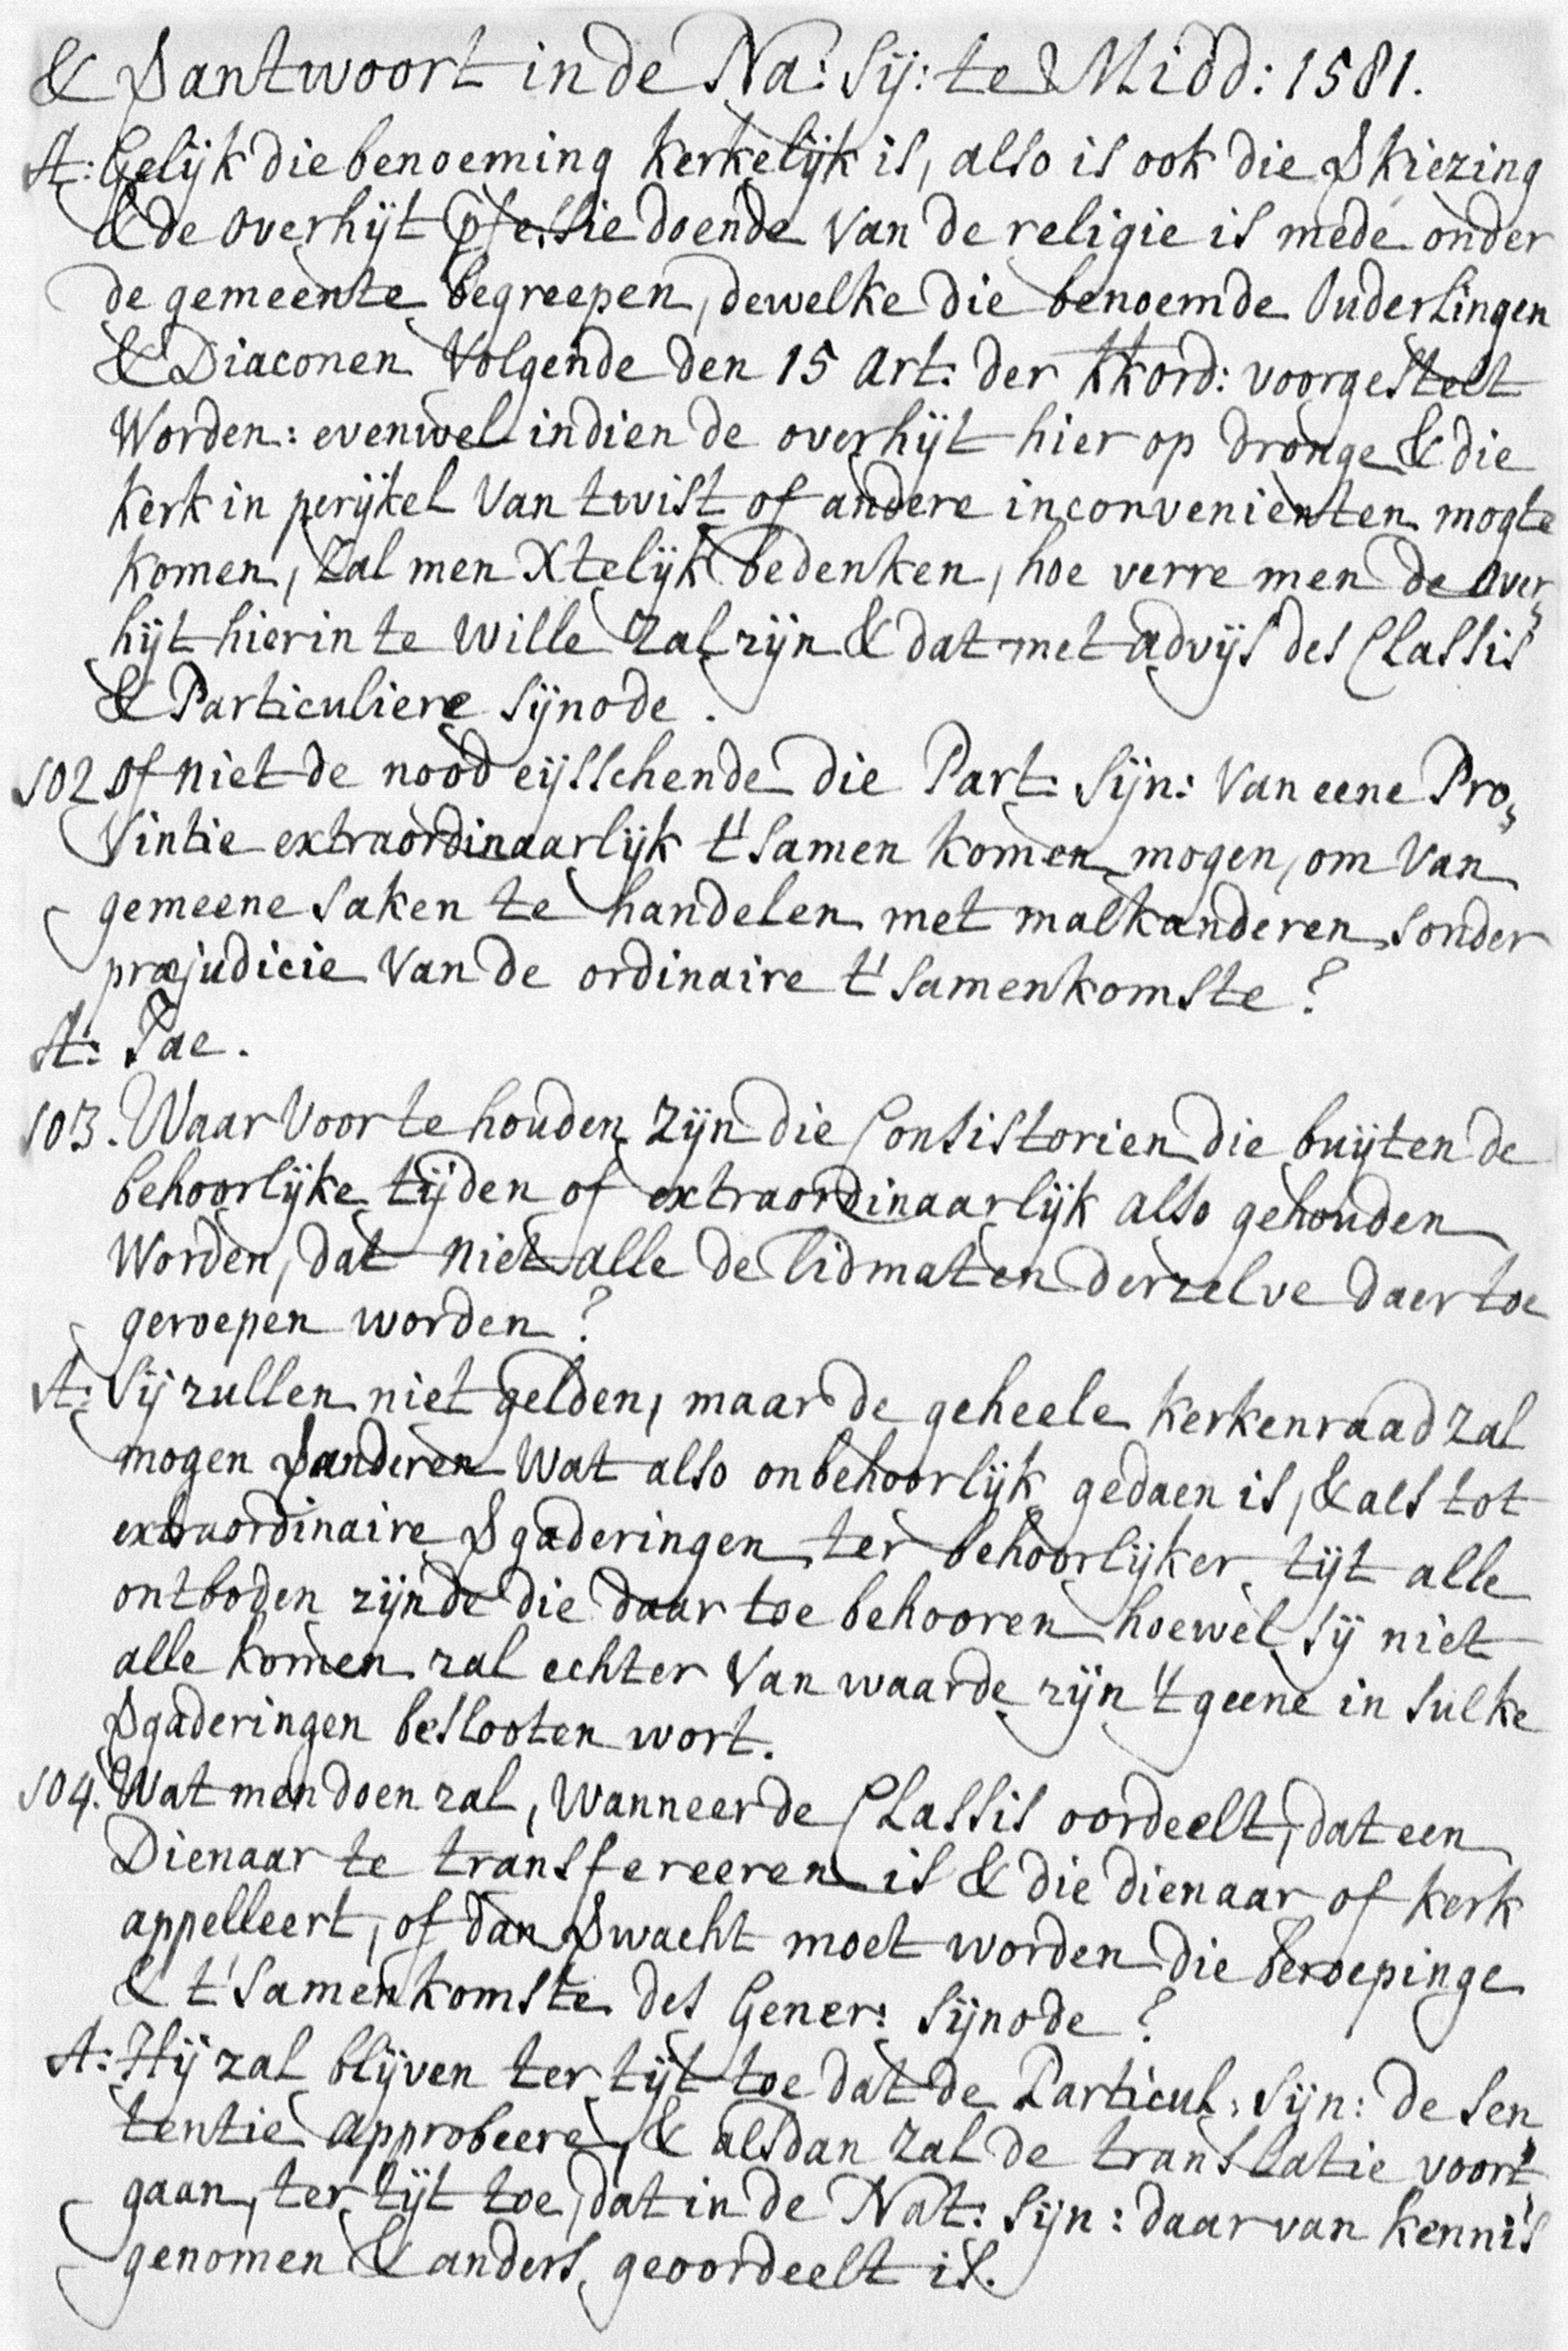 & Vantwoort in de Na: Sij: te Midd: 1581.
A: Gelijk die benoeming kerkelijk is, also is ook die Vkiezing
& de overhijt pfessie doende van de religie is mede onder
de gemeente begreepen, dewelke die benoemde Ouderlingen
& Diaconen volgende den 15 Art: der kkord: voorgestelt
Worden: evenwel indien de overhijt hier op dronge & die
kerk in perijkel van twist of andere inconvenienten mogte
komen, zal men Xtelijk bedenken, hoe verre men de Over„
hijt hierin te wille zal zijn & dat met advijs des Classis
& Particuliere Sijnode.
102 Of niet de nood eijsschende die Part: Sijn: van eene Pro„
vintie extraordinaarlijk t'samen komen mogen, om van
gemeene saken te handelen met malkanderen sonder
præjudicie van de ordinaire t'samenkomste?
A: Jae.
103. Waar voor te houden zijn die Consistorien die buijten de
behoorlijke tijden of extraordinaarlijk also gehouden
Worden, dat niet alle de lidmaten derzelve daer toe
geroepen worden?
A: Sij zullen niet gelden, maar de geheele kerkenraad zal
mogen Vanderen wat also onbehoorlijk gedaen is, & als tot
extraordinaire Vgaderingen ter behoorlijker tijt alle
ontboden zijnde die daar toe behooren hoewel sij niet
alle komen zal echter van waarde zijn 't geene in sulke
Vgaderingen beslooten wort.
104. Wat men doen zal, wanneer de Classis oordeelt, dat een
Dienaar te transfereeren is & die dienaar of kerk
appelleert, of dan Vwacht moet worden die beroepinge
& t'samenkomste des Gener: Sijnode?
A: Hij zal blijven ter tijt toe dat de Particul: Sijn: de sen„
tentie approbeere, & alsdan zal de translatie voort„
gaan, ter tijt toe, dat in de Nat: Sijn: daar van kennis
genomen & anders geoordeelt is.